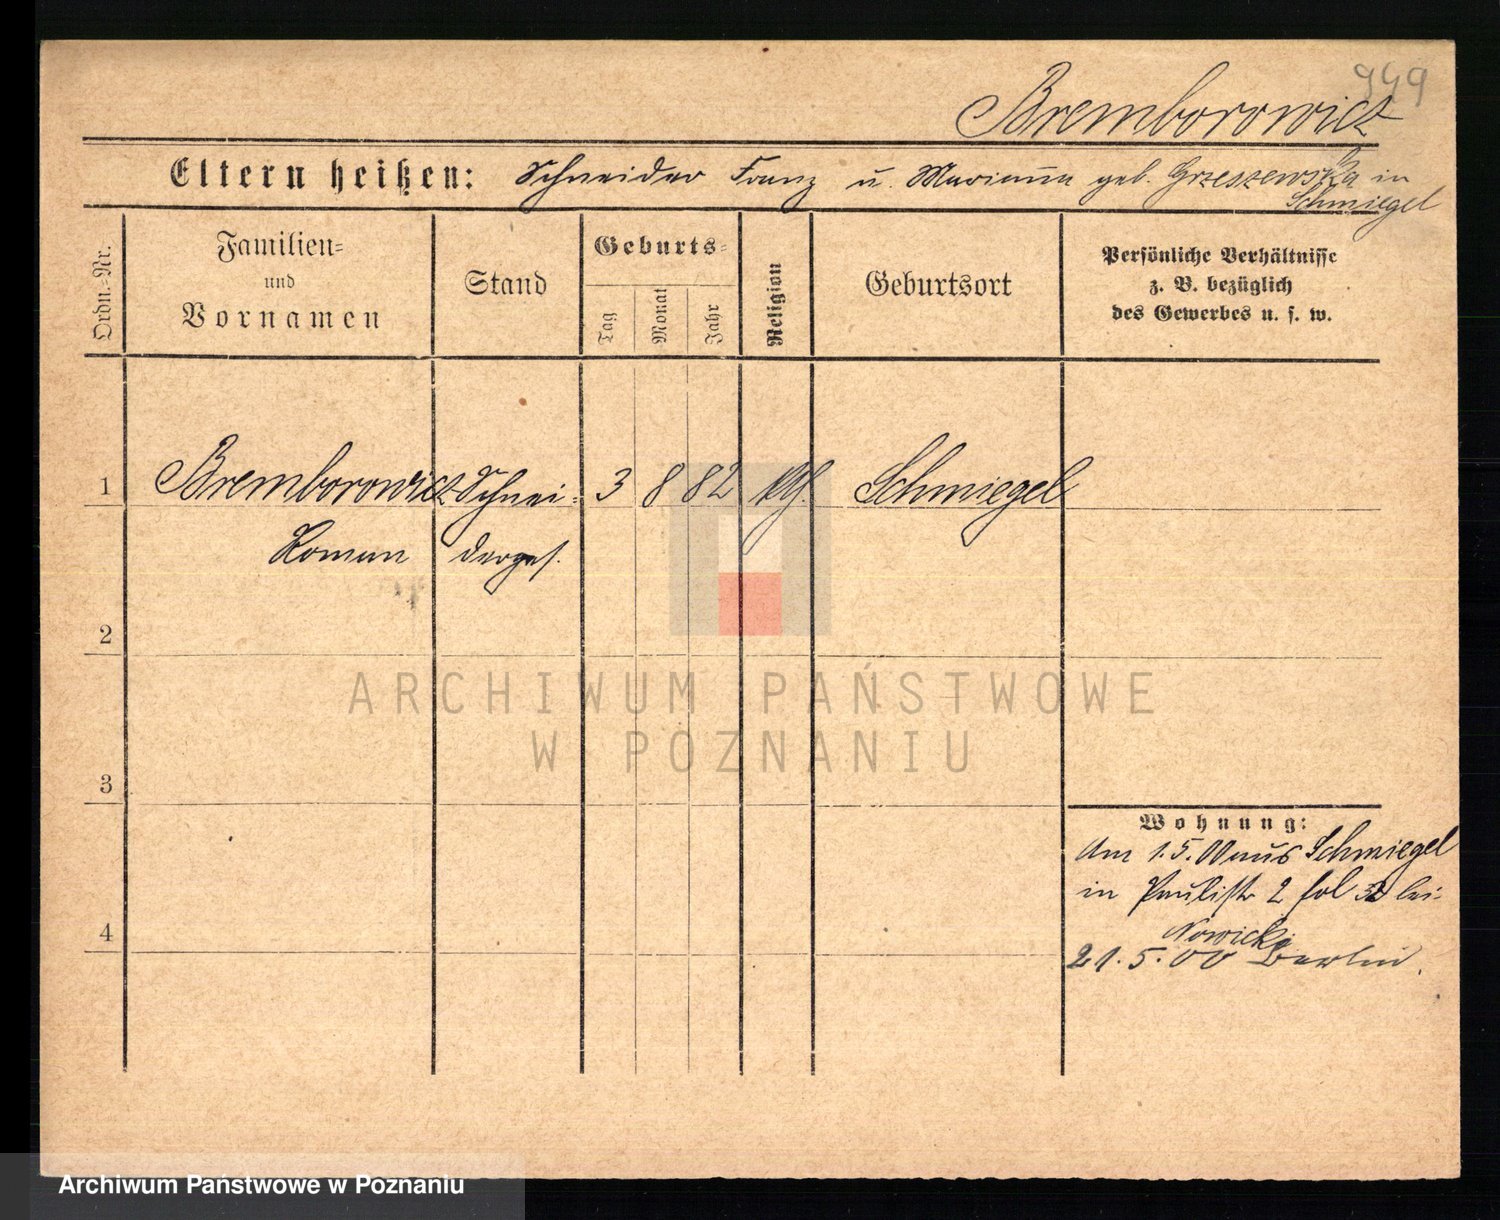 949
Bremborowicz
Eltern heißen: Schneider Franz u. Marianna geb. Grzeszewska in
Schmiegel
Ordn.-Nr.
Familien-
und
Vornamen
Stand
Geburts-
Tag
Monat
Jahr
Religion
Geburtsort
Persönliche Verhältnisse
z. B. bezüglich
des Gewerbes u. s. w.
1 Bremborowicz Schnei- 3 8 82 kth. Schmiegel
Romanderges.
2
ARCHIWUM PAŃSTWOWE
W POZNANIU
3
Wohnung:
Am 1.5.00 aus Schmiegel
in Paulistr 2 fol 32 bei
Nowicki
4
21.5.00 Berlin.
Archiwum Państwowe w Poznaniu